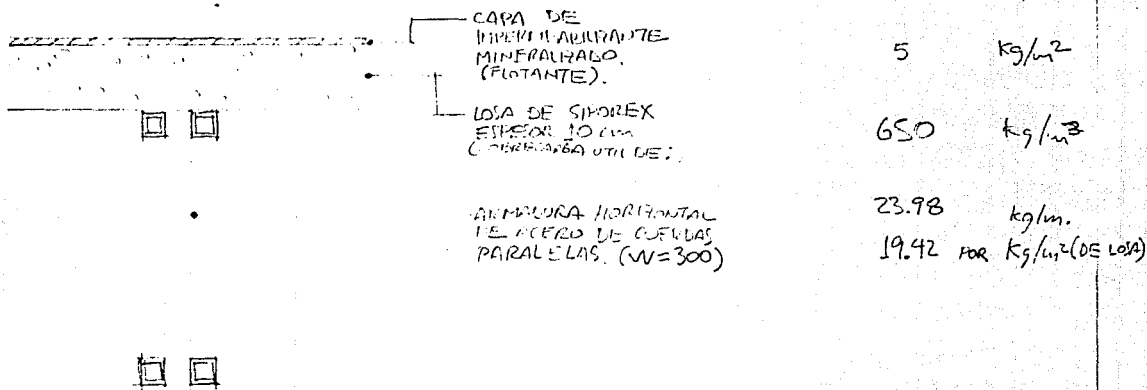 CAPA DE
IMPERMEABILIZANTE
MINERALIZADO.
(FLOTANTE).
5 Kg/m2
LOSA DE SIPOREX
ESPESOR 10 cm
(SOBRECARGA UTIL DE:
650 kg/m3
ARMADURA HORIZONTAL
DE ACERO DE CUERDAS
PARALELAS. (W=300)
23.98 kg/m.
19.42 POR Kg/m2 (DE LOSA)